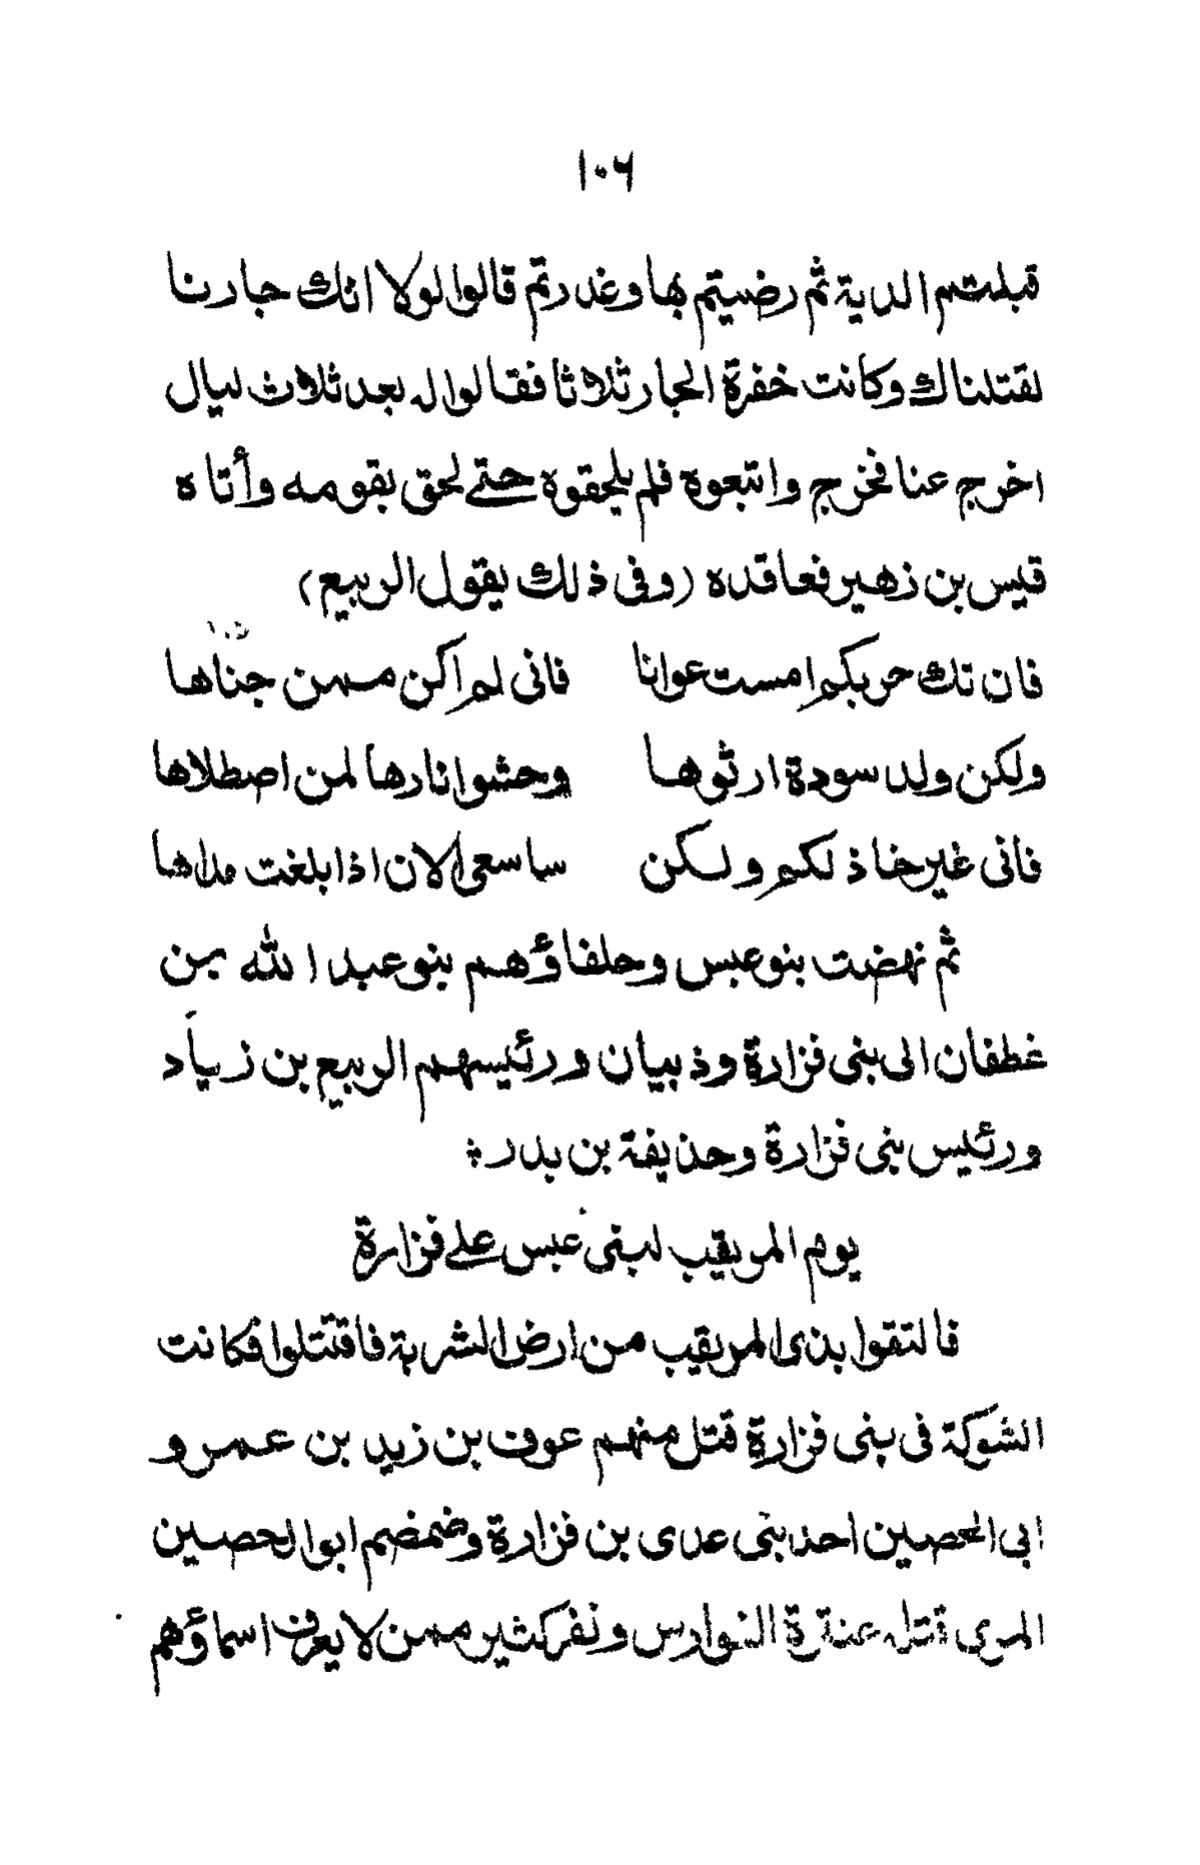 ١٠٦
قبلتم الدية ثم رضيتم بها وغدرتم قالوا لولا انك جارنا
لقتلناك وكانت خفرة الجار ثلاثا فقالوا له بعد ثلاث ليال
اخرج عنا فخرج واتبعوه فلم يلحقوه حتى لحق بقومه وأتاه
قيس بن زهير فعاقده (وفى ذلك يقول الربيع)
فان تك حربكم امست عوانا فانى لم اكن ممن جناها
ولكن ولد سودة ارثوها وحشوا نارها لمن اصطلاها
فانى غير خاذلكم ولكن ساسعى الان اذا بلغت مداها
ثم نهضت بنو عبس وحلفاؤهم بنو عبد الله بن
غطفان الى بنى فزارة وذبيان ورئيسهم الربيع بن زياد
ورئيس بنى فزارة وحذيفة بن بدر
يوم المريقب لبنى عبس على فزارة
فالتقوا بذى المريقب من ارض الشربة فاقتتلوا فكانت
الشوكة فى بنى فزارة قتل منهم عوف بن زيد بن عمرو
ابى الحصين احد بنى عدى بن فزارة وضمضم ابو الحصين
المرى قتله عنترة الفوارس ونفر كثير ممن لا يعرف اسماؤهم